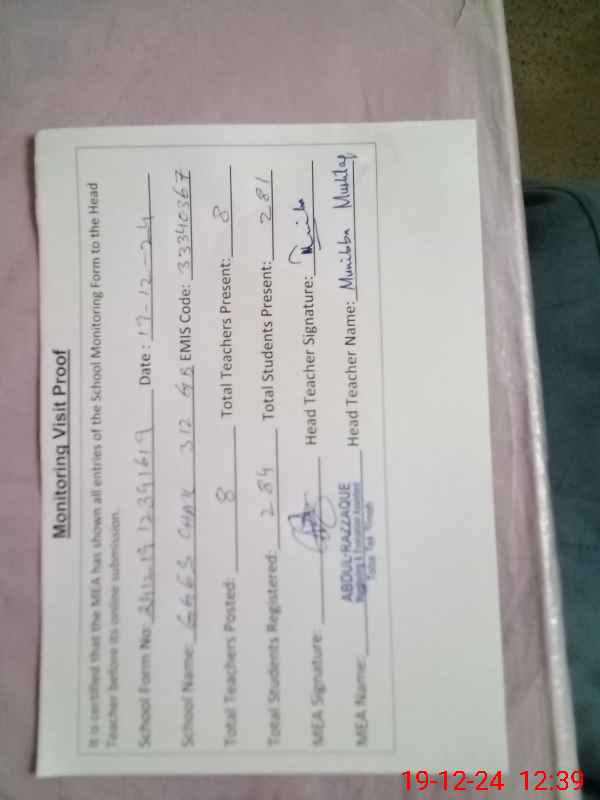 Monitoring Visit Proof
It is certified that the MEA has shown all entries of the School Monitoring Form to the Head
Teacher before its online submission.
School Form No: 241219 12391619 Date : 19-12-24
School Name: GGES CHAK 312 GB EMIS Code: 33340367
Total Teachers Posted: 8 Total Teachers Present: 8
Total Students Registered: 284 Total Students Present: 281
MEA Signature: Head Teacher Signature:
ABDUL-RAZZAQUE
Monitoring & Evaluation Assistant
Toba Tek Singh
MEA Name: Head Teacher Name: Munibba Mushtaq
19-12-24 12:39